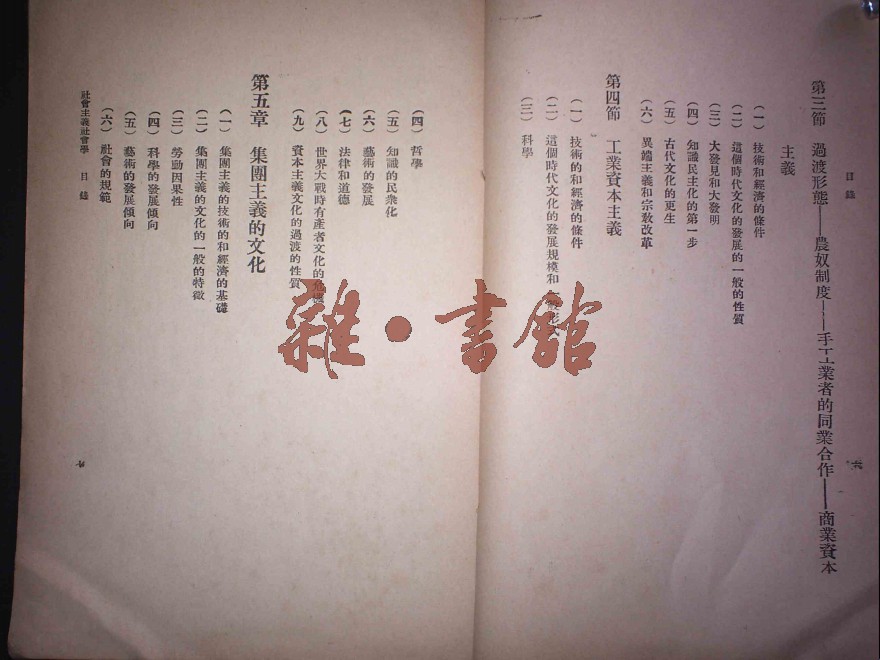 目錄
第三節 過渡形態——農奴制度——手工業者的同業合作——商業資本
主義
(一) 技術和經濟的條件
(二) 這個時代文化的發展的一般的性質
(三) 大發見和大發明
(四) 知識民主化的第一步
(五) 古代文化的更生
(六) 異端主義和宗敎改革
第四節 工業資本主義
(一) 技術的和經濟的條件
(二) 這個時代文化的發展規模和一般形式
(三) 科學
六
(四) 哲學
(五) 知識的民衆化
(六) 藝術的發展
(七) 法律和道德
(八) 世界大戰時有產者文化的危機
(九) 資本主義文化的過渡的性質
第五章 集團主義的文化
(一) 集團主義的技術的和經濟的基礎
(二) 集團主義的文化的一般的特徵
(三) 勞動因果性
(四) 科學的發展傾向
(五) 藝術的發展傾向
(六) 社會的規範
社會主義社會學 目錄
雜·書館